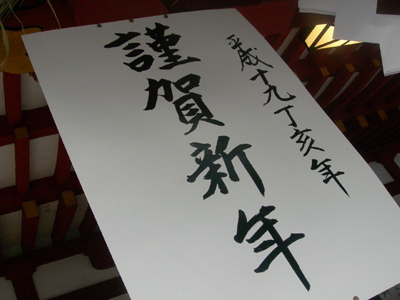 平成十九丁亥年
謹賀新年